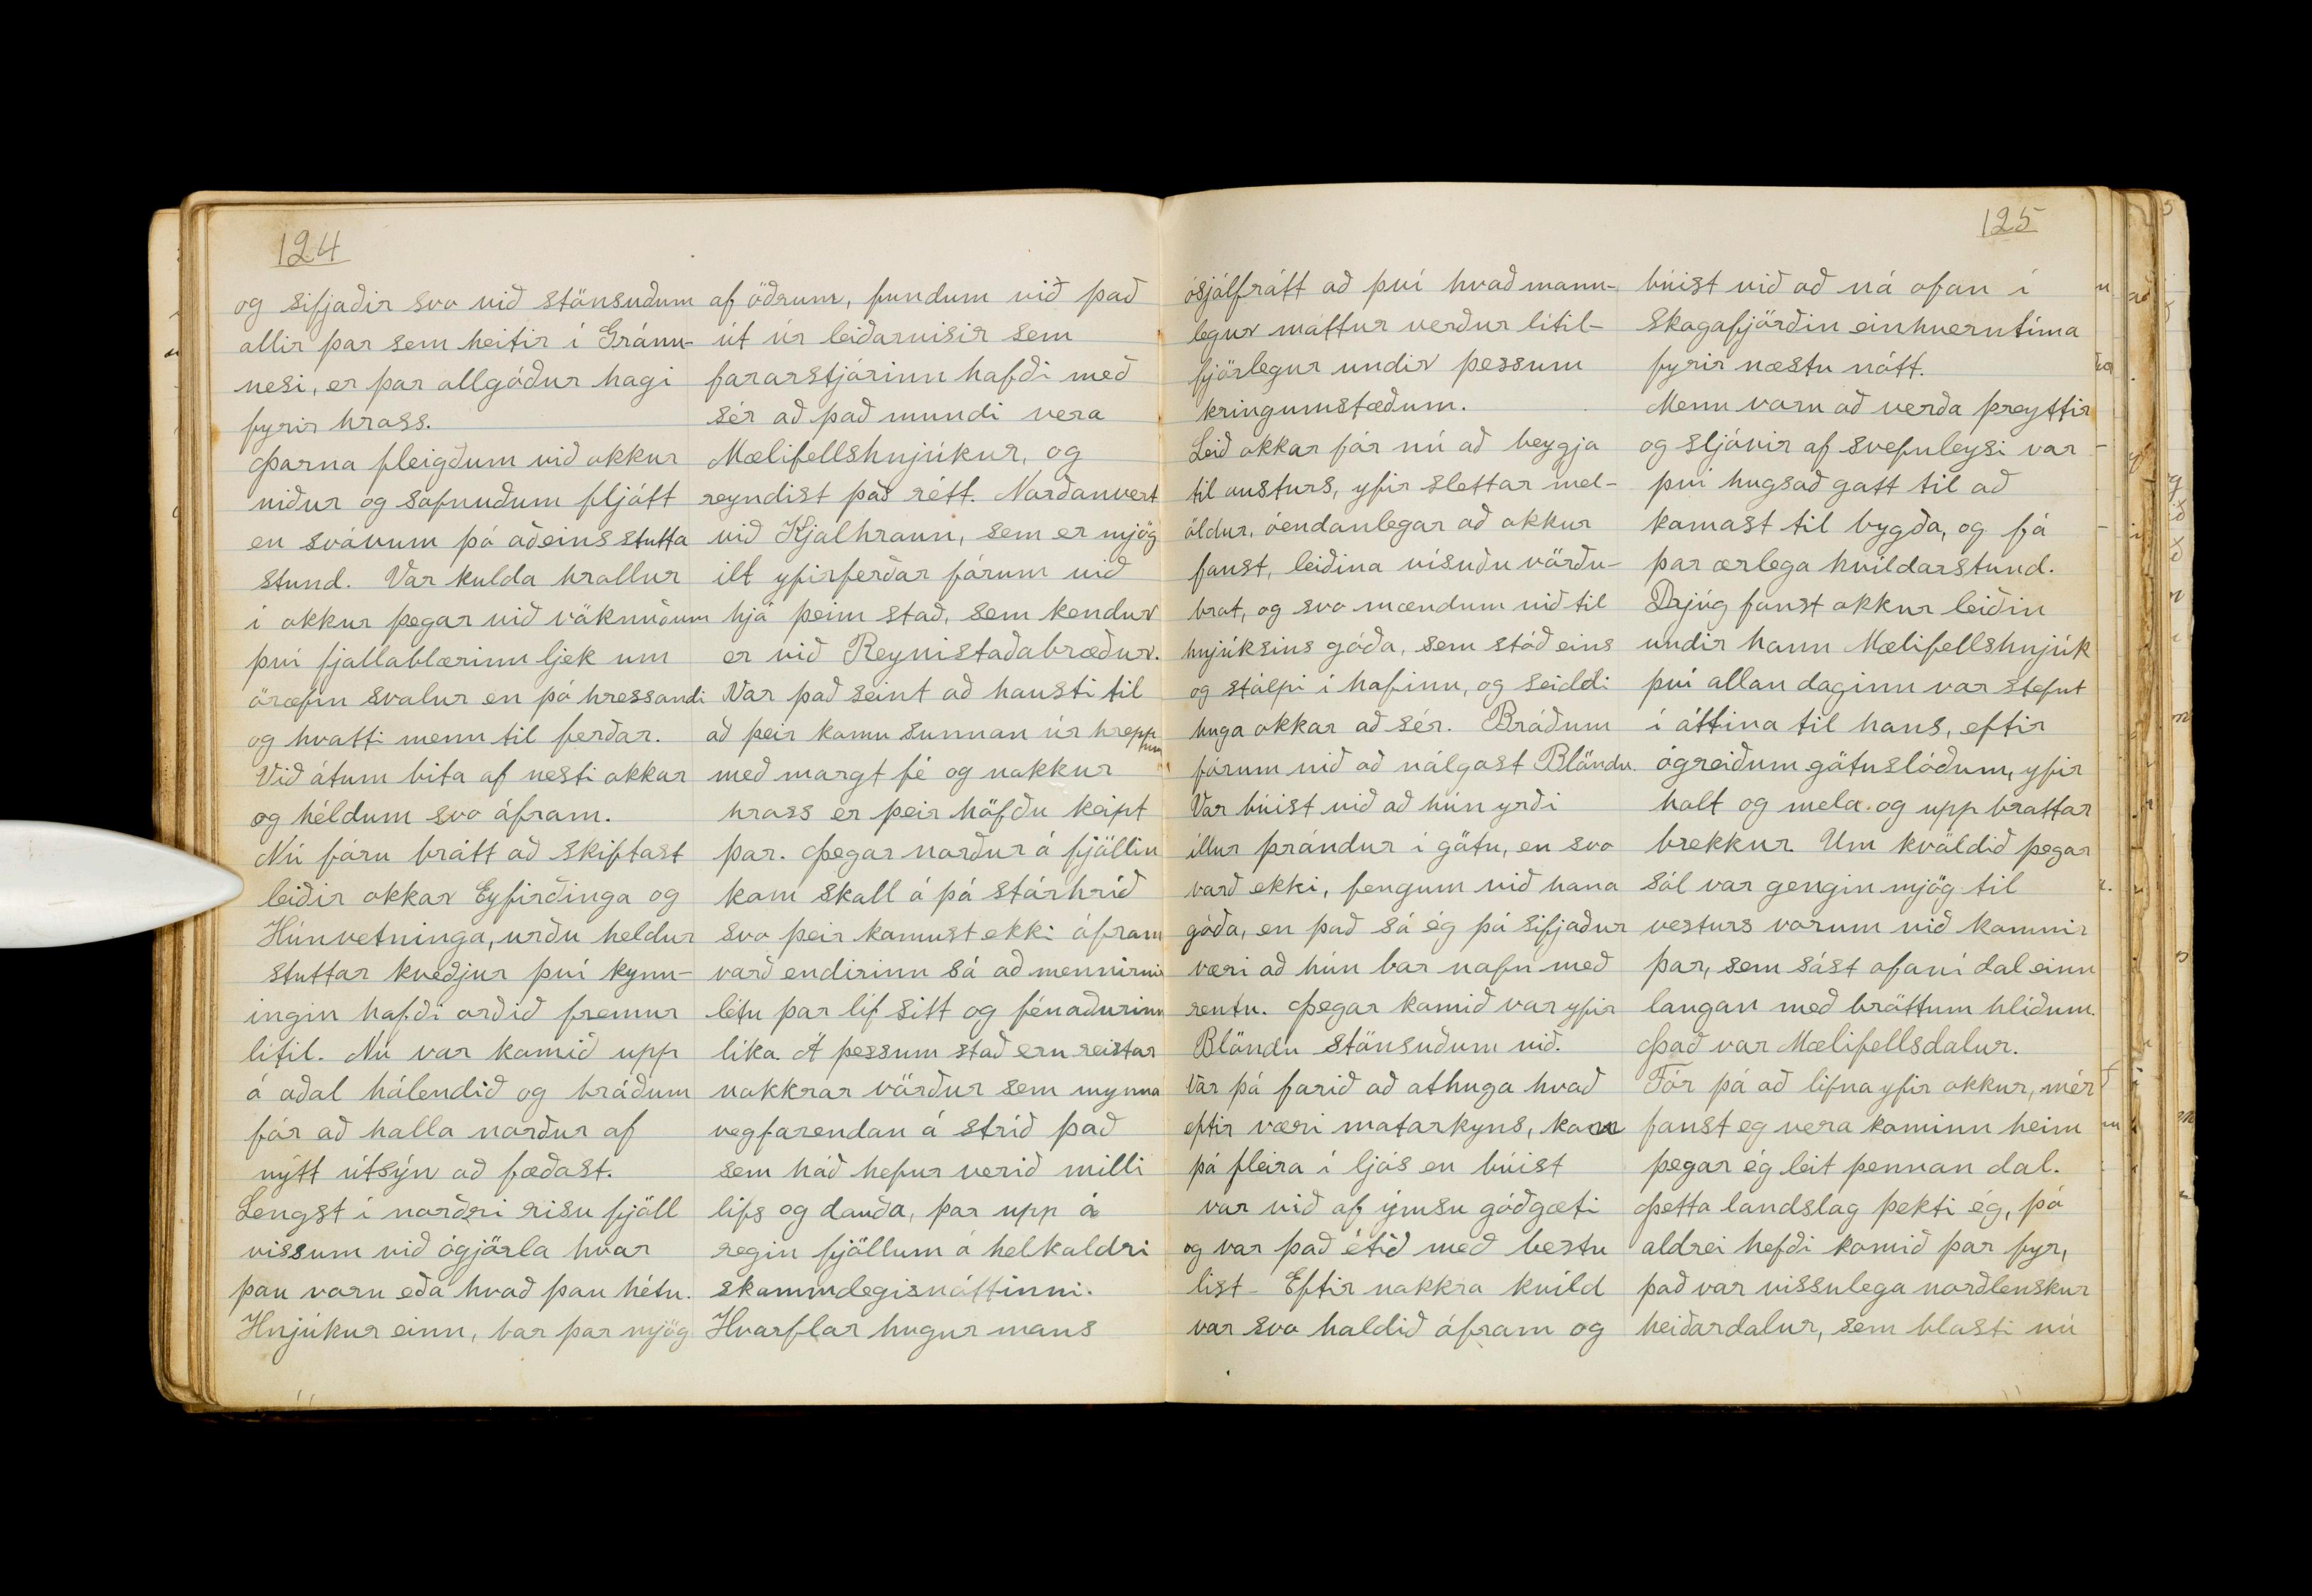 124
og sifjaðir svo við stönsuðum
allir þar sem heitir í Gránu-
nesi, er þar allgóður hagi
fyrir hross.
Þarna fleigðum við okkur
niður og sofnuðum fljótt
en svávum þó aðeins stutta
stund. Var kulda hrollur
í okkur þegar við vöknuðum
því fjallablærinn ljek um
öræfin svalur en þó hressandi
og hvatti menn til ferðar.
Við átum bita af nesti okkar
og héldum svo áfram.
Nú fóru brátt að skiftast
leiðir okkar Eyfirðinga og
Húnvetninga, urðu heldur
stuttar kveðjur því kynn-
ingin hafði orðið fremur
lítil. Nú var komið upp
á aðal hálendið og bráðum
fór að halla norður af
nýtt útsýn að fæðast.
Lengst í norðri risu fjöll
vissum við ógjörla hvar
þau voru eða hvað þau hétu.
Hnjúkur einn, bar þar mjög
af öðrum, fundum við það
út úr leiðarvisir sem
fararstjórinn hafði með
sér að það mundi vera
Mælifellshnjúkur, og
reyndist það rétt. Norðanvert
við Kjalhraun, sem er mjög
ilt yfirferðar fórum við
hjá þeim stað, sem kendur
er við Reynistaðabræður.
Var það seint að hausti til
að þeir komu sunnan úr hreppum
með margt fé og nokkur
hross er þeir höfðu keipt
þar. Þegar norður á fjöllin
kom skall á þá stórhríð
svo þeir komust ekki áfram
varð endirinn sá að mennirnir
létu þar líf sitt og fénaðurinn
líka. Á þessum stað eru reistar
nokkrar vörður sem mynna
vegfarendan á stríð það
sem háð hefur verið milli
lífs og dauða, þar upp á
regin fjöllum á helkaldri
skammdegisnóttinni.
Hvarflar hugur mans
125
ósjálfrátt að því hvað mann-
legur máttur verður lítil-
fjörlegur undir þessum
kringumstæðum.
Leið okkar fór nú að beygja
til austurs, yfir slettar mel-
öldur, óendanlegar að okkur
fanst, leiðina vísuðu vörðu-
brot, og svo mændum við til
hnjúksins góða, sem stóð eins
og stólpi í hafinu, og seiddi
huga okkar að sér. Bráðum
fórum við að nálgast Blöndu.
Var búist við að hún yrði
illur þrándur í götu, en svo
varð ekki, fengum við hana
góða, en það sá ég þó sifjaður
væri að hún bar nafn með
rentu. Þegar komið var yfir
Blöndu stönsuðum við.
Var þá farið að athuga hvað
eftir væri matarkyns, kom
þá fleira í ljós en búist
var við af ýmsu góðgæti
og var það étið með bestu
list - Eftir nokkra kvíld
var svo haldið áfram og
búist við að ná ofan í
Skagafjörðin einhverntíma
fyrir næstu nótt.
Menn voru að verða þreyttir
og sljóvir af svefnleysi var
því hugsað gott til að
komast til bygða, og fá
þar ærlega hvíldarstund.
Drjúg fanst okkur leiðin
undir hann Mælifellshnjúk
því allan daginn var stefnt
í áttina til hans, eftir
ógreiðum götuslóðum, yfir
holt og mela og upp brattar
brekkur. Um kvöldið þegar
sól var gengin mjög til
vesturs vorum við komnir
þar, sem sást ofaní dal einn
langan með bröttum hlíðum.
Það var Mælifellsdalur.
Fór þá að lifna yfir okkur, mér
fanst eg vera kominn heim
þegar ég leit þennan dal.
Þetta landslag þekti ég, þó
aldrei hefði komið þar fyr,
það var vissulega norðlenskur
heiðardalur, sem blasti nú